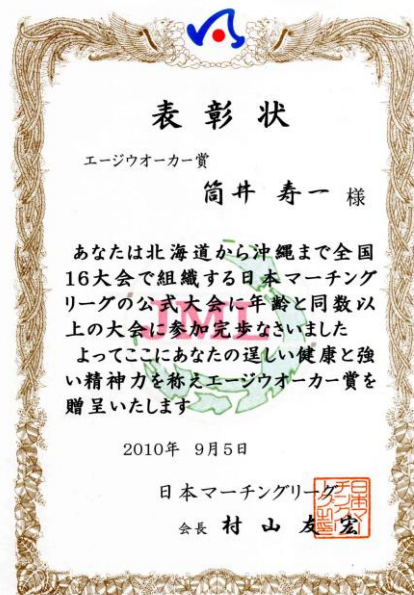 表彰状
エージウオーカー賞
筒井 寿一 様
あなたは北海道から沖縄まで全国
16大会で組織する日本マーチング
リーグの公式大会に年齢と同数以
上の大会に参加完歩なさいました
よってここにあなたの逞しい健康と強
い精神力を称えエージウオーカー賞を
贈呈いたします
JML
2010年 9月5日
日本マーチングリーグ
会長 村山友宏